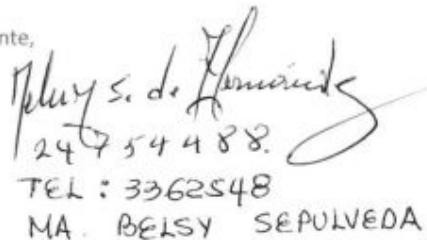 nte,
Belsy S. de Hernández
24754488.
TEL: 3362548
MA. BELSY SEPULVEDA